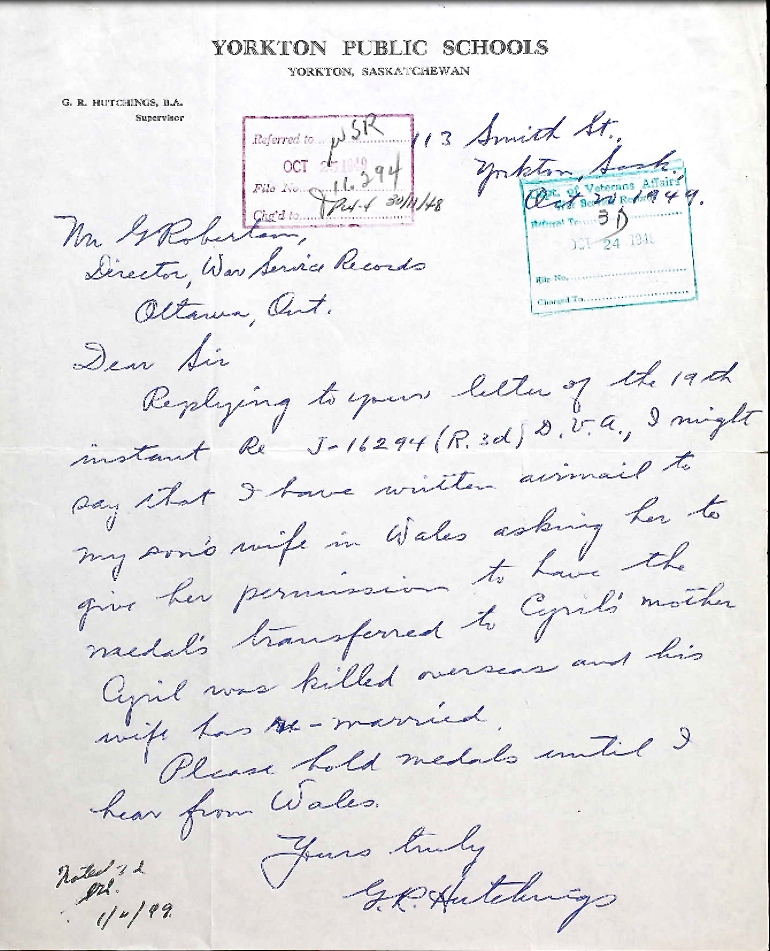 YORKTON PUBLIC SCHOOLS
YORKTON, SASKATCHEWAN
G. R. HUTCHINGS, B.A.
Supervisor
Referred to WSR
OCT 25 1949
File No. 16294
Chg'd to 30/11/48
113 Smith St.,
Yorkton, Sask.,
Oct 20 1949.
Dept. of Veterans Affairs
Referral To 3D
OCT 24 1949
File No.
Charged To
Mr G Robertson,
Director, War Service Records
Ottawa, Ont.
Dear Sir
Replying to your letter of the 19th
instant Re J-16294 (R.3d) D.V.A., I might
say that I have written airmail to
my son's wife in Wales asking her to
give her permission to have the
medal's transferred to Cyril's mother
Cyril was killed overseas and his
wife has re-married.
Please hold medals until I
hear from Wales.
Yours truly
G.R. Hutchings
Noted 3d
1/11/49